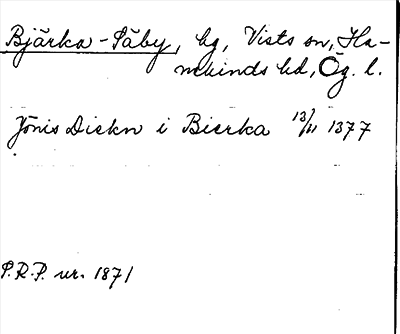 Bjärka-Säby, hg, Vists sn, Ha-
nekinds hd, Ög. l.
Jönis Diekn i Bierka 13/11 1377
S.R.P. nr. 1871